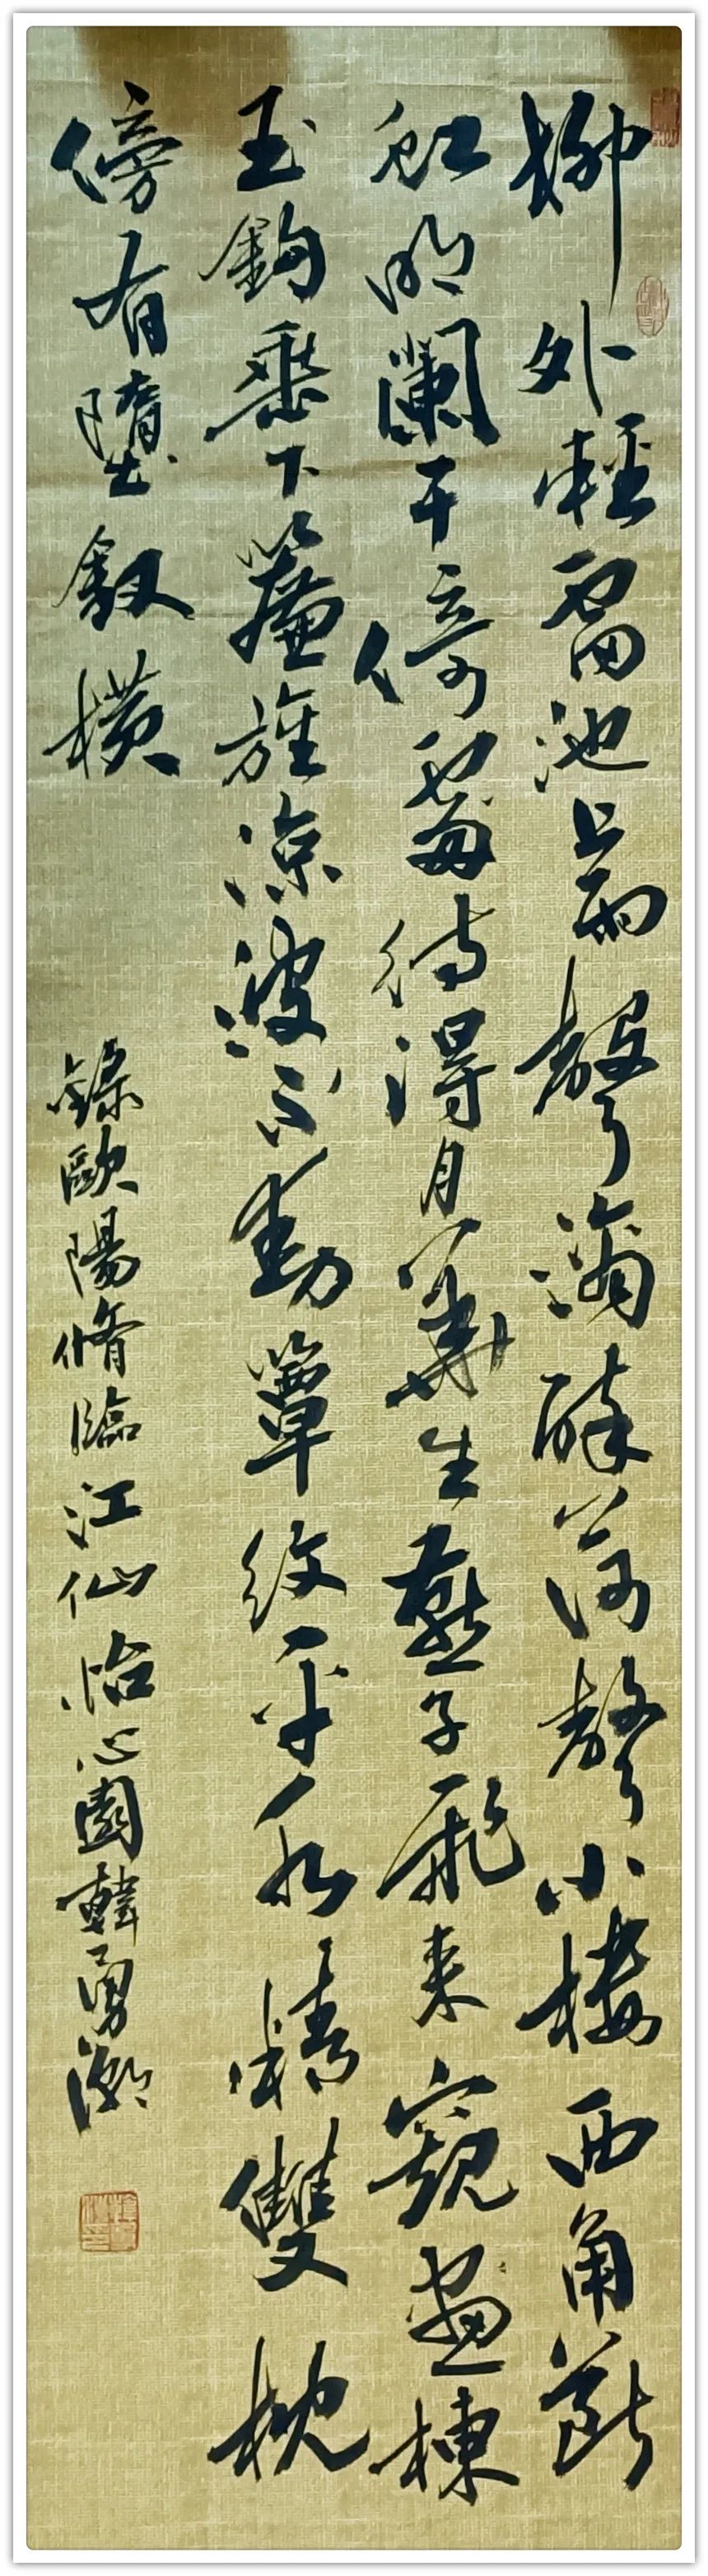 柳外輕雷池上雨聲滴碎荷聲小樓西角斷
虹明闌干倚處待得月華生燕子飛來窺畫棟
玉鉤垂下簾旌涼波不動簟紋平水精雙枕
傍有墮釵橫
錄歐陽脩臨江仙怡心園韓勇